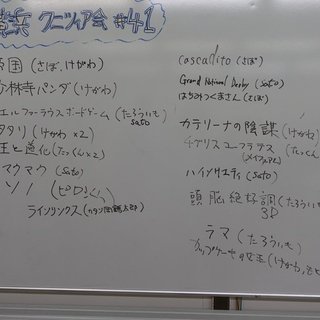 横浜 クニツィア会 #41
帝国 (さぼ、けがわ)
少林寺パンダ (けがわ)
エルファーラウスボードゲーム (たろういも)
sato
タタリ (けがわ×2)
王と道化 (たっくん×2)
マクマク (sato)
ソノ (ピロシくん)
ラインリンクス
cascadito (さぼ)
Grand National Derby (sato)
はちみつくまさん (さぼ)
カテリーナの陰謀 (けがわ)
チグリスユーフラテス (たっくん)
(メイフェア版)
ハイソサエティ (sato)
頭脳絶好調 (たろういも)
3D
ラマ (たろういも)
カップケーキの女王 (けがわ,